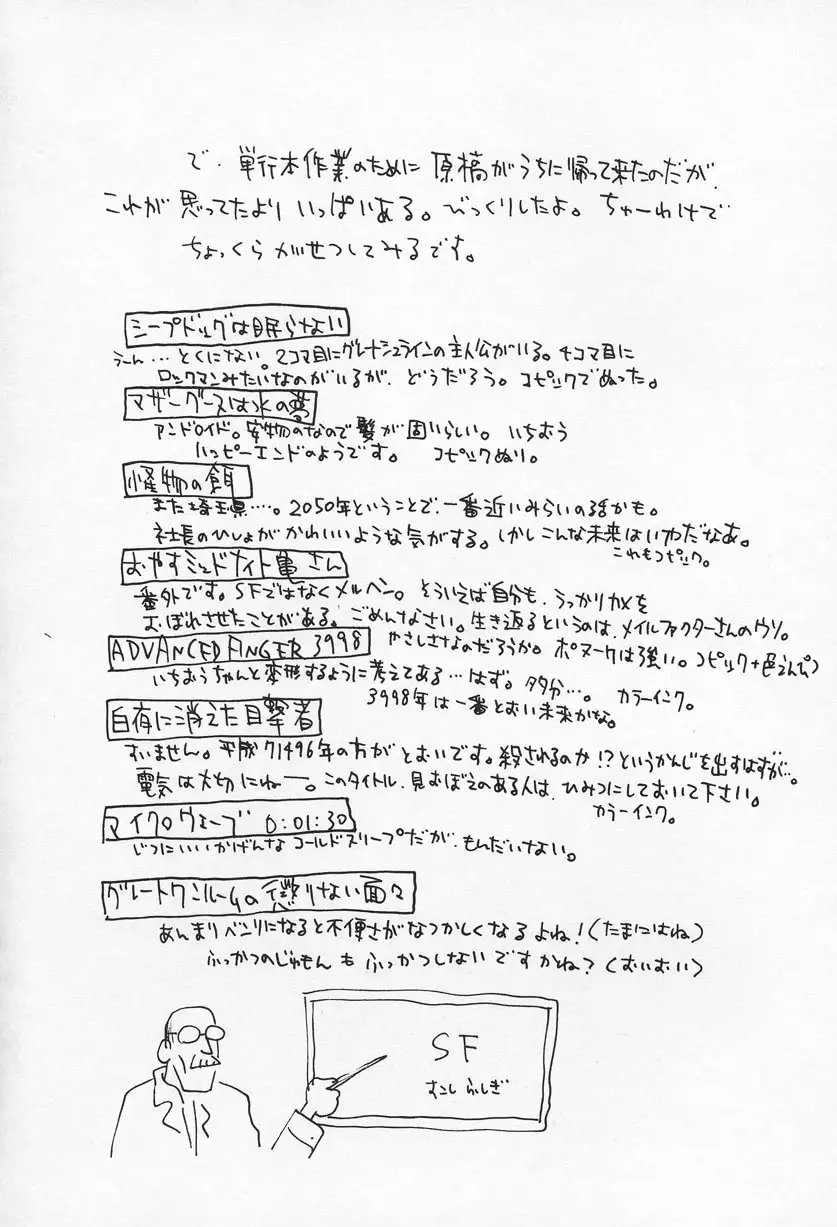 で、単行本作業のために 原稿がうちに帰って来たのだが、
これが 思ってたより いっぱいある。びっくりしたよ。ちゅーわけで
ちょっくら かいせつしてみるです。
シープドッグは眠らない
うーん…とくにない。2コマ目にグレートシュラインの主人公がいる。4コマ目に
ロックマンみたいなのがいるが、どうだろう。コピックでぬった。
マザーグースは氷の夢
アンドロイド。安物のなので髪が固いらしい。いちおう
ハッピーエンドのようです。 コピックぬり。
怪物の餌
また埼玉県…。2050年ということで、一番近いみらいの話かも。
社長のひしょがかわいいような気がする。しかしこんな未来はいやだなあ。
これもコピック。
おやすミッドナイト亀さん
番外です。SFではなくメルヘン。そういえば自分も、うっかりカメを
おぼれさせたことがある。ごめんなさい。生き返るというのは、メイルファクターさんのウソ。
やさしさなのだろうか。ポヌークは強い。コピック+色えんぴつ
ADVANCED FINGER 3998
いちおうちゃんと変形するように考えてある…はず。多分…。 カラーインク。
3998年は一番とおい未来かな。
白夜に消えた目撃者
すいません。平成71496年の方がとおいです。殺されるのか!?というかんじを出すはずが…。
電気は大切にねー。このタイトル、見おぼえのある人は、ひみつにしておいて下さい。
カラーインク。
マイクロウェーブ 0:01:30
じつにいいかげんな コールドスリープだが、もんだいない。
グレートワンルームの懲りない面々
あんまりベンリになると不便さがなつかしくなるよね!(たまにはね)
ふっかつのじゅもん も ふっかつしないですかね?(おいおい)
SF
すこし ふしぎ